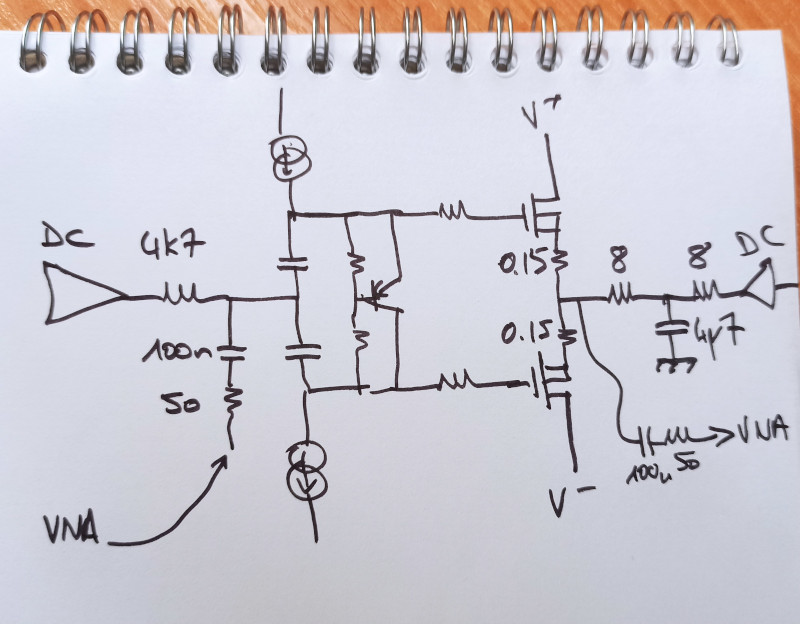 V+
DC
4k7
0.15
8
8
DC
100n
0.15
4µ7
50
VNA
100n
50
V-
VNA